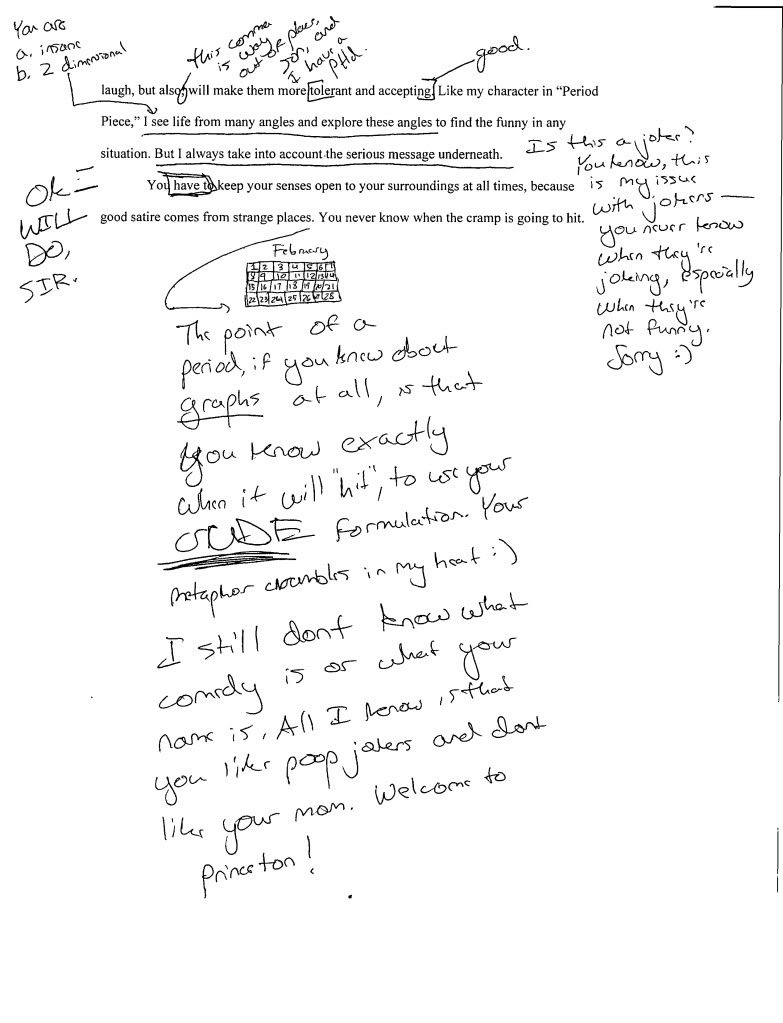 You are
a. insane
b. 2 dimensional
this comma
is way
out of place,
son, and
I have a
PHd.
good.
laugh, but also, will make them more tolerant and accepting. Like my character in “Period
Piece,” I see life from many angles and explore these angles to find the funny in any
situation. But I always take into account the serious message underneath.
You have to keep your senses open to your surroundings at all times, because
good satire comes from strange places. You never know when the cramp is going to hit.
OK
WILL
DO,
SIR.
Is this a joke?
You know, this
is my issue
with jokers —
you never know
when they're
joking, especially
when they're
not funny.
Sorry :)
February
1 2 3 4 5 6 7
8 9 10 11 12 13 14
15 16 17 18 19 20 21
22 23 24 25 26 27 28
The point of a
period, if you knew about
graphs at all, is that
you know exactly
when it will "hit", to use your
CRUDE formulation. Your
metaphor crumbles in my heat :)
I still dont know what
comedy is or what your
name is. All I know is that
you like poop jokes and dont
like your mom. Welcome to
Princeton!